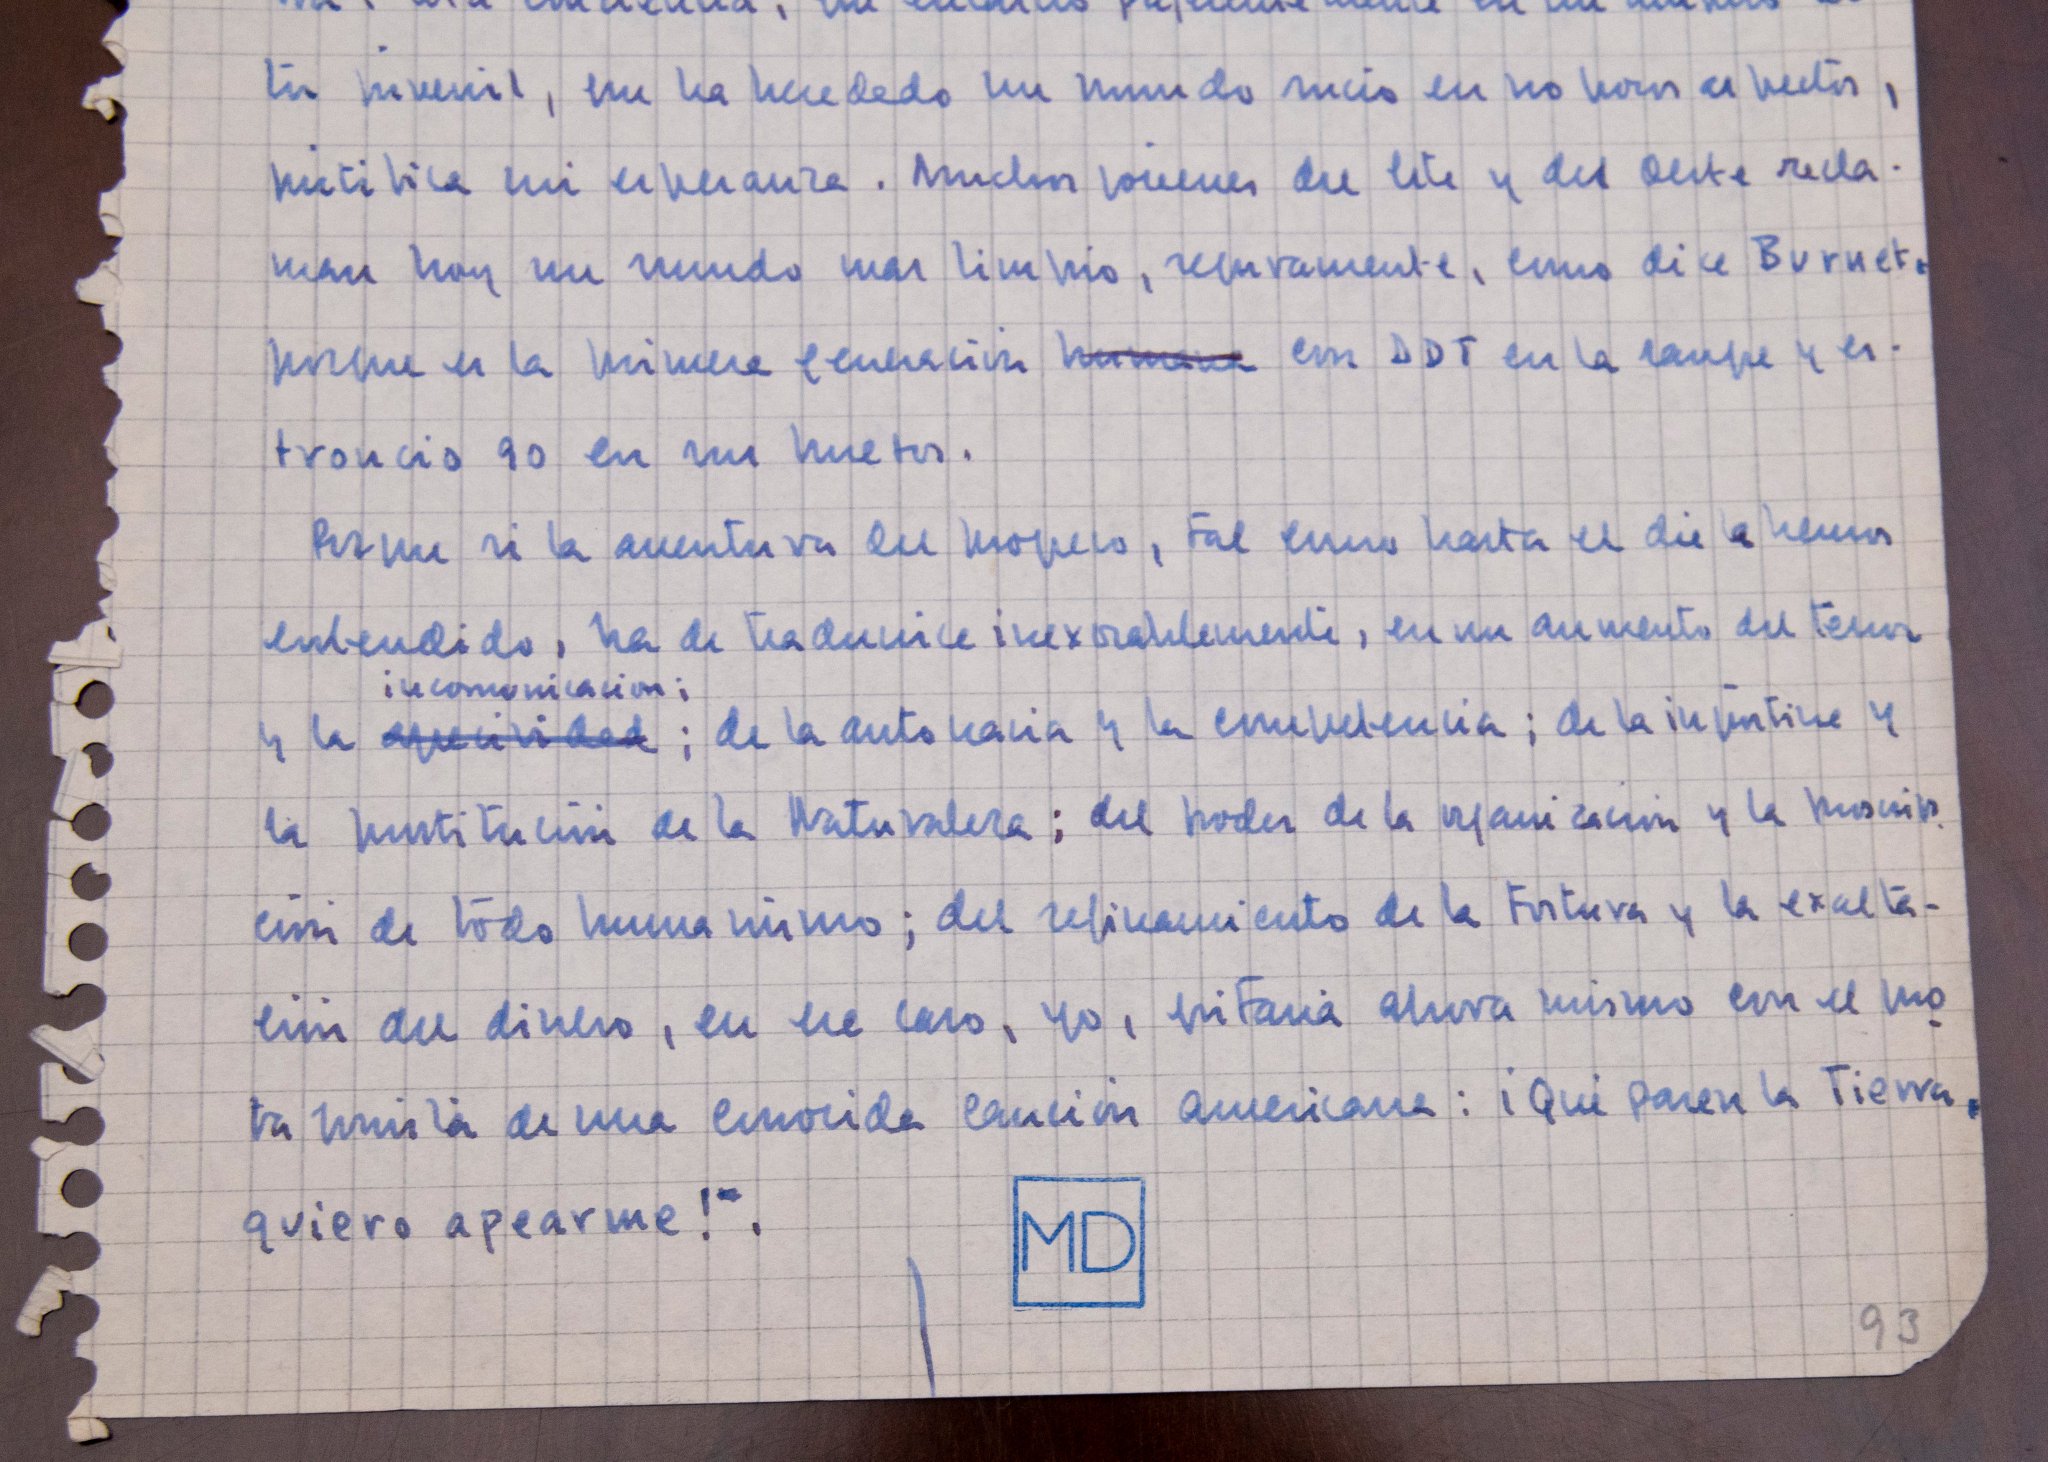 tor juvenil, que ha heredado un mundo sucio en no pocos aspectos,
justifica mi esperanza. Muchos jóvenes del Este y del Oeste recla-
man hoy un mundo mas limpio, seguramente, como dice Burnet,
porque es la primera generación humana con DDT en la sangre y es-
troncio 90 en sus huesos.
Porque si la aventura del progreso, tal como hasta el dia la hemos
entendido, ha de traducirse inexorablemente, en un aumento del terror
incomunicacion;
y la agresividad; de la autocracia y la competencia; de la injusticia y
la prostitución de la Naturaleza; del poder de la organización y la proscrip-
ción de todo humanismo; del refinamiento de la tortura y la exalta-
ción del dinero, en ese caso, yo, gritaria ahora mismo con el
de una conocida canción americana: ¡Que paren la Tierra,
quiero apearme!".
MD
93